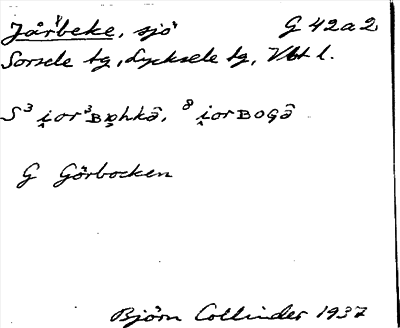 Jårbeke, sjö G 42a2
Sorsele tg, Lycksele tg, Vbt l.
S ³ i̯or³Bo̭hkâ, ⁸ i̯orBOGâ
G Görbocken
Björn Collinder 1937